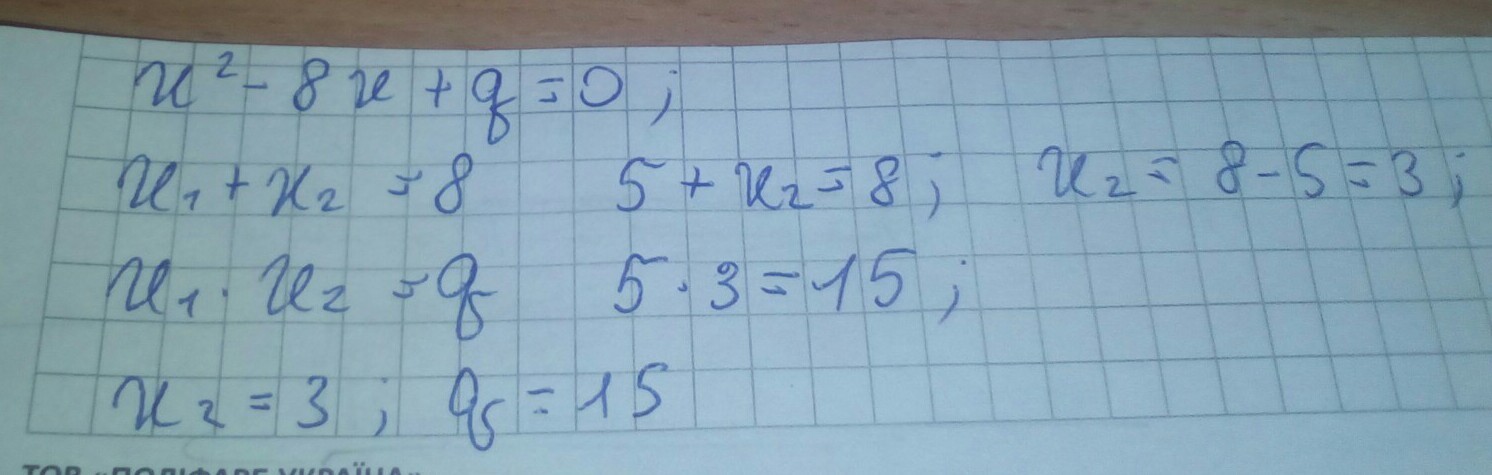 x² - 8x + q = 0;
x₁ + x₂ = 8 5 + x₂ = 8; x₂ = 8 - 5 = 3;
x₁ · x₂ = q 5 · 3 = 15;
x₂ = 3; q = 15
ТОВ «ПОЛІФАРБ УКРАЇНА»